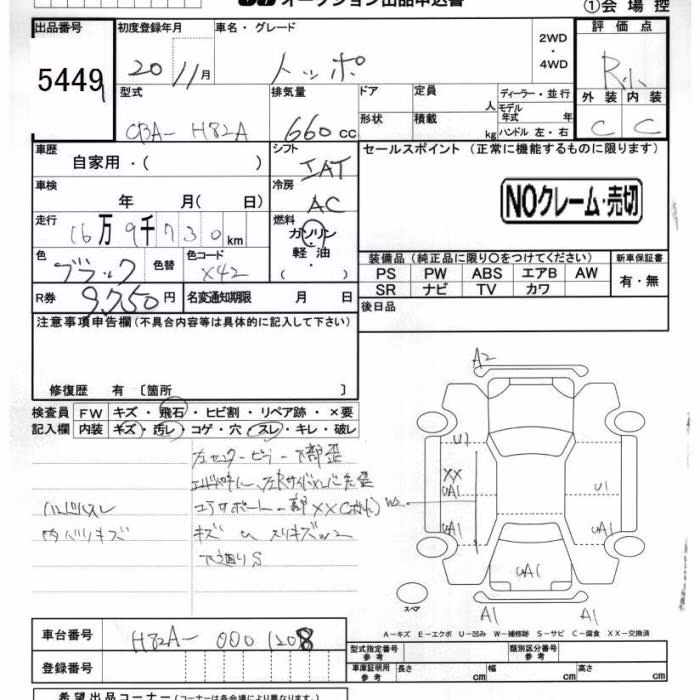 オークション出品申込書
①会場控
出品番号
初度登録年月
車名・グレード
2WD
・
4WD
評価点
5449
20 11月
トッポ
R小
型式
排気量
ドア
定員
人
ディーラー・並行
外装 内装
形状
積載
kg
モデル年式 年式
ハンドル 左・右
CBA- H82A
660 cc
C C
車歴
自家用・( )
シフト
IAT
セールスポイント(正常に機能するものに限ります)
車検
年 月( 日)
冷房
AC
NOクレーム・売切
走行
16万9千730km
燃料
ガソリン
・
軽油
( )
色
ブラック
色替
色コード
X42
装備品(純正品に限り○をつけてください)
新車保証書
PS PW ABS エアB AW
有・無
SR ナビ TV カワ
R券
9,750円
名変通知期限 月 日
後日品
注意事項申告欄(不具合内容等は具体的に記入して下さい)
修復歴 有〔箇所 〕
A2
検査員
記入欄
FW キズ・飛石・ヒビ割・リペア跡・×要
内装 キズ・汚レ・コゲ・穴・スレ・キレ・破レ
左センターピラー下部歪
ハンドルスレ
内ハリキズ
キズ
下廻りS
U1
XX
UA1
W2
U1
UA1
UA1
UA1
スペア
A1
A1
A-キズ E-エクボ U-凹み W-補修跡 S-サビ C-腐食 XX-交換済
車台番号
H82A- 0001208
登録番号
型式指定番号 参考
類別区分番号 参考
車庫証明用 参考
長さ cm
幅 cm
高さ cm
希望出品コーナー(コーナーは各会場により異なります)